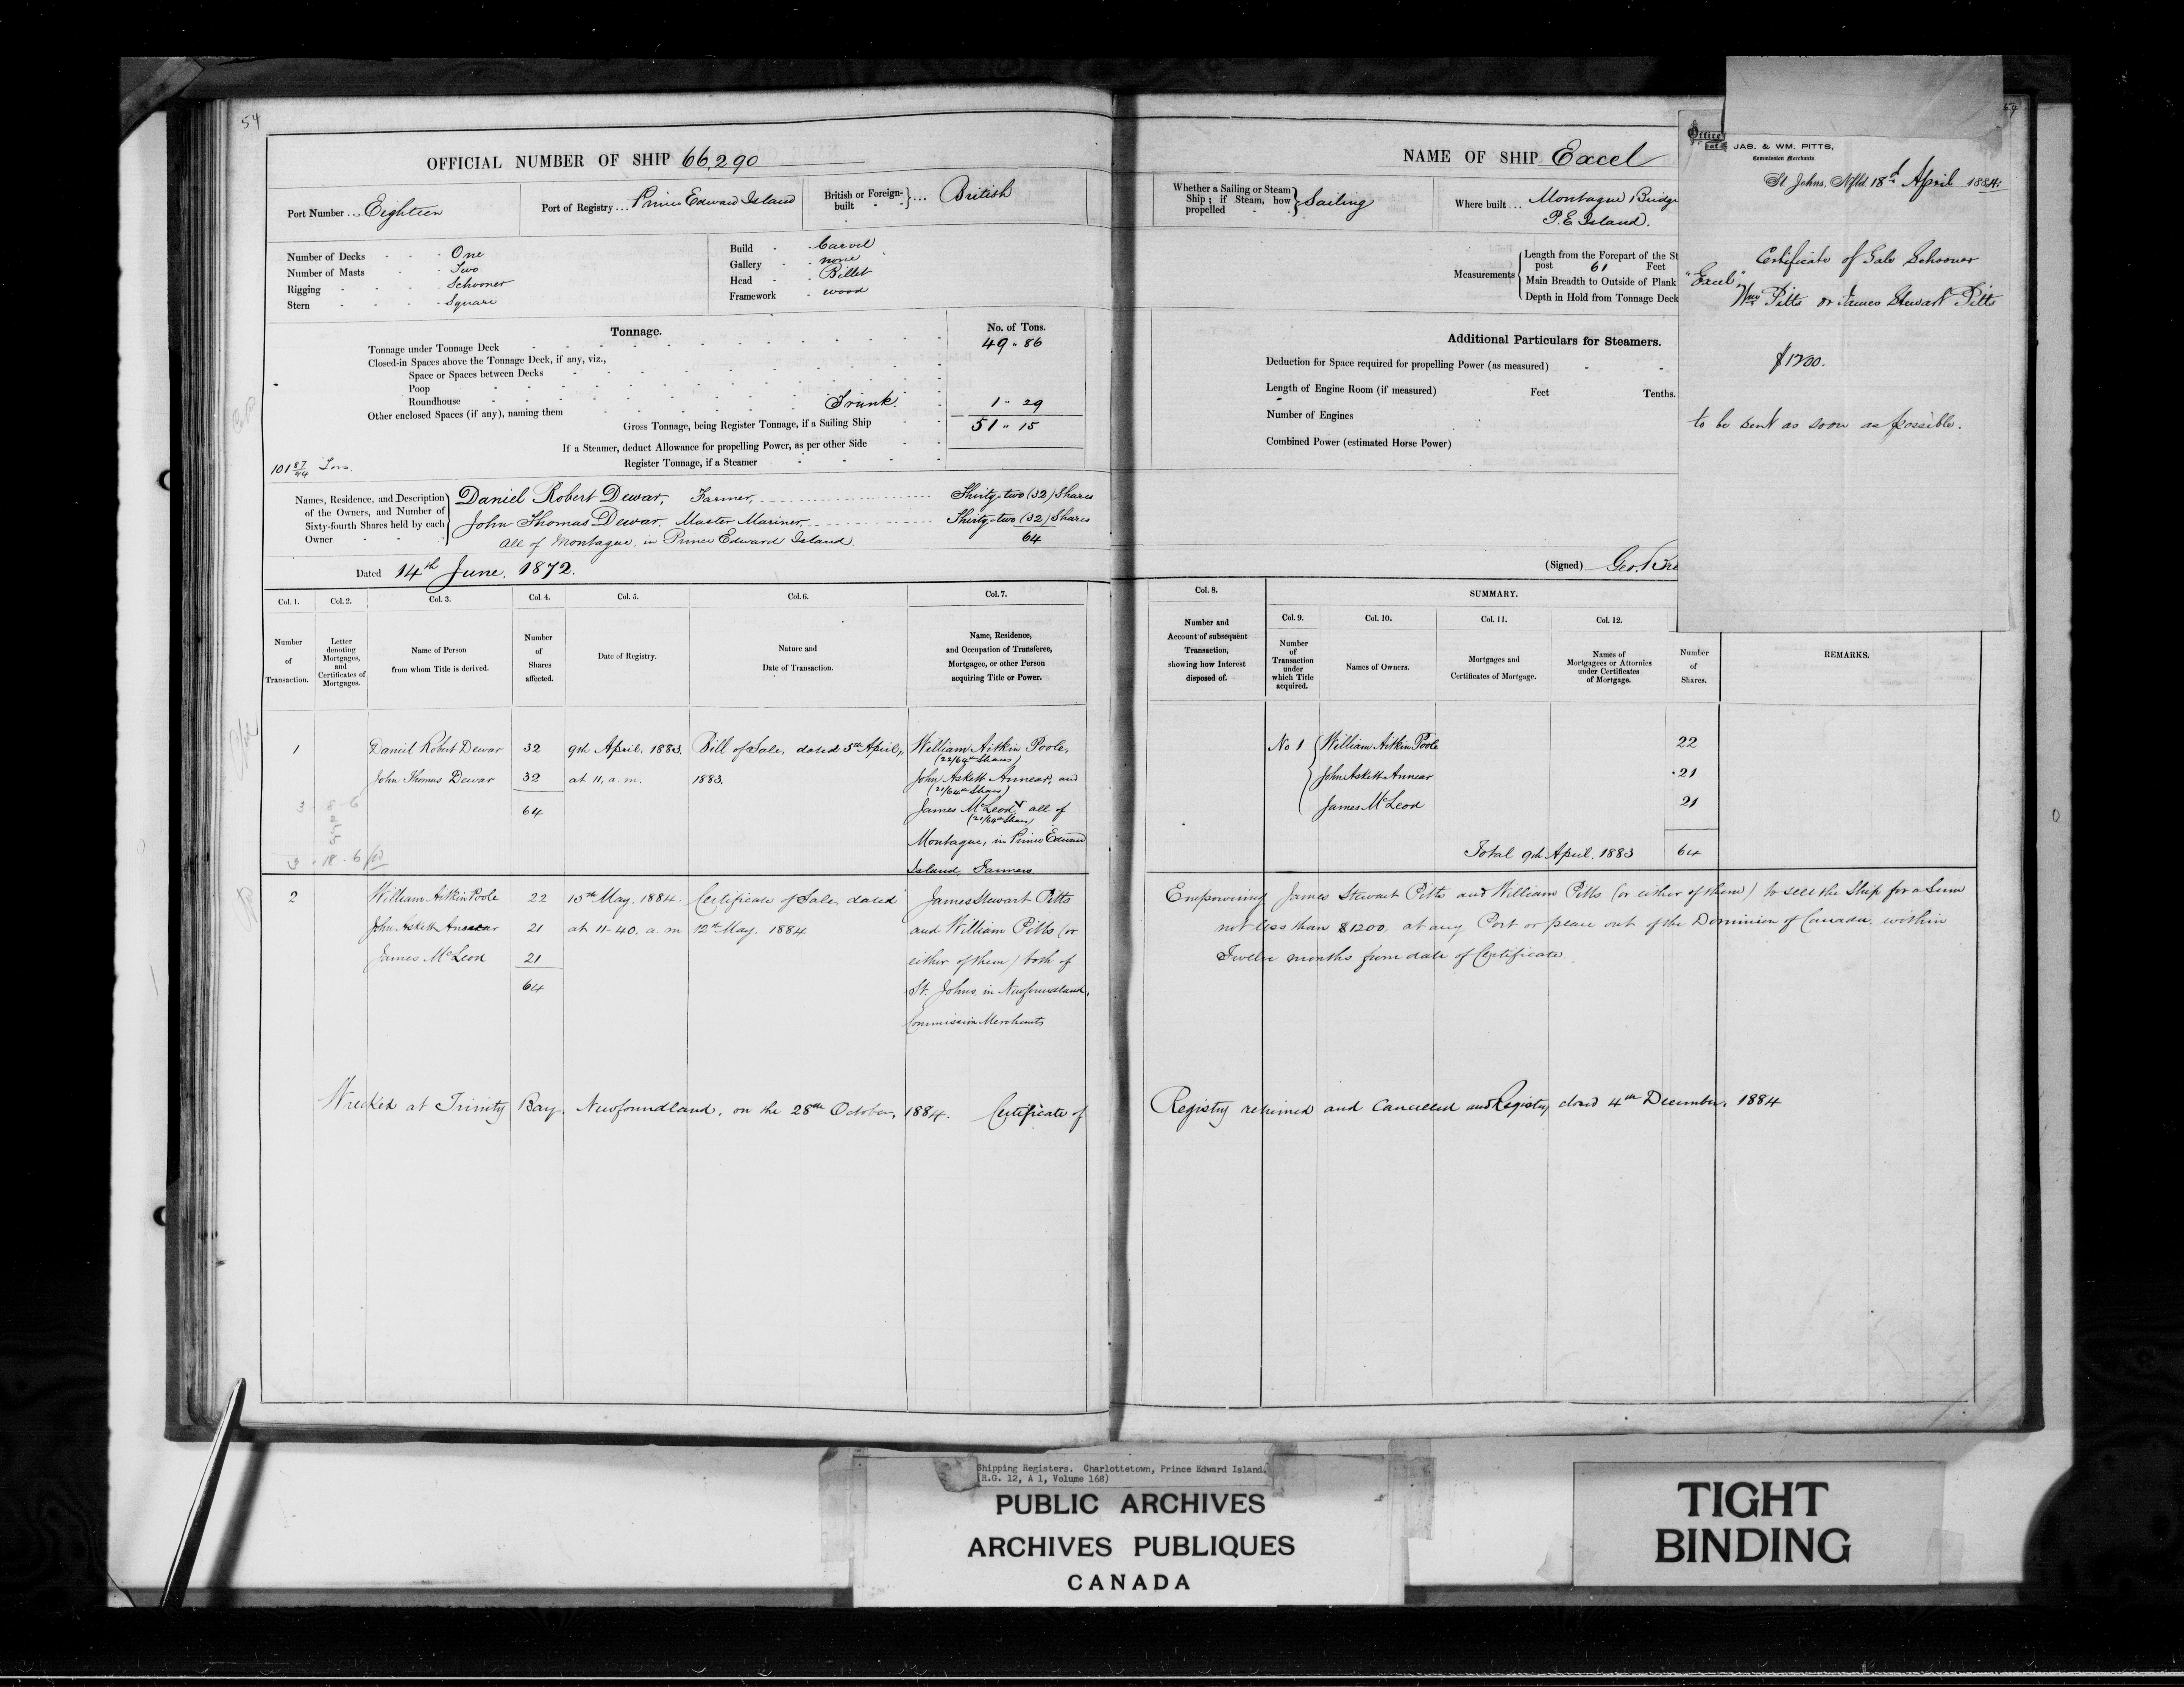 54
OFFICIAL NUMBER OF SHIP 66,290
Port Number ... Eighteen
Port of Registry ... Prince Edward Island
British or Foreign-built } ... British
Number of Decks - - - One
Number of Masts - - Two
Rigging - - - Schooner
Stern - - - - Square
Build - Carvel
Gallery - none
Head - Billet
Framework - wood
Tonnage.
No. of Tons.
Tonnage under Tonnage Deck 49 " 86
Closed-in Spaces above the Tonnage Deck, if any, viz.,
Space or Spaces between Decks
Poop
Roundhouse
Other enclosed Spaces (if any), naming them Trunk 1 " 29
Gross Tonnage, being Register Tonnage, if a Sailing Ship 51 " 15
If a Steamer, deduct Allowance for propelling Power, as per other Side
Register Tonnage, if a Steamer
101 87/94 Tons
Names, Residence, and Description of the Owners, and Number of Sixty-fourth Shares held by each Owner
Daniel Robert Dewar, Farmer, Thirty-two (32) Shares
John Thomas Dewar, Master Mariner, Thirty-two (32) Shares
all of Montague, in Prince Edward Island. 64
Dated 14th June, 1872.
Col. 1. Col. 2. Col. 3. Col. 4. Col. 5. Col. 6. Col. 7.
Number of Transaction.
Letter denoting Mortgages, and Certificates of Mortgages.
Name of Person from whom Title is derived.
Number of Shares affected.
Date of Registry.
Nature and Date of Transaction.
Name, Residence, and Occupation of Transferee, Mortgagee, or other Person acquiring Title or Power.
1 Daniel Robert Dewar 32 9th April, 1883. Bill of Sale, dated 5th April, William Aitkin Poole,
(22/64th Shares)
John Thomas Dewar 32 at 11, a.m. 1883. John Askett Annear, and
(21/64th Shares)
64 James McLeod all of
(21/64th Shares)
Montague, in Prince Edward
Island, Farmers
2 William Aitkin Poole 22 15th May, 1884. Certificate of Sale, dated James Stewart Pitts
John Askett Annear 21 at 11-40. a.m 12th May. 1884 and William Pitts (or
James McLeod 21 either of them) both of
64 St. Johns, in Newfoundland,
Commission Merchants
Wrecked at Trinity Bay, Newfoundland, on the 28th October, 1884. Certificate of
NAME OF SHIP Excel
Whether a Sailing or Steam Ship; if Steam, how propelled } Sailing
Where built ... Montague Bridge
P. E. Island.
Measurements
Length from the Forepart of the St
post 61 Feet
Main Breadth to Outside of Plank
Depth in Hold from Tonnage Deck
Additional Particulars for Steamers.
Deduction for Space required for propelling Power (as measured)
Length of Engine Room (if measured) Feet Tenths.
Number of Engines
Combined Power (estimated Horse Power)
(Signed) Geo.
Col. 8. SUMMARY.
Col. 9. Col. 10. Col. 11. Col. 12.
Number and Account of subsequent Transaction, showing how Interest disposed of.
Number of Transaction under which Title acquired.
Names of Owners.
Mortgages and Certificates of Mortgage.
Names of Mortgagees or Attornies under Certificates of Mortgage.
Number of Shares.
REMARKS.
No 1 William Aitkin Poole 22
John Askett Annear 21
James McLeod 21
Total 9th April, 1883 64
Empowering James Stewart Pitts and William Pitts (or either of them) to sell the Ship for a Sum
not less than $1200, at any Port or place out of the Dominion of Canada, within
Twelve months from date of Certificate.
Registry returned and Cancelled and Registry closed 4th December, 1884
Office of
JAS. & WM. PITTS,
Commission Merchants.
St. Johns, Nfld 18th April 1884
Certificate of Sale Schooner
"Excel"
Wm Pitts or James Stewart Pitts
$1200.
to be sent as soon as possible.
Shipping Registers. Charlottetown, Prince Edward Island.
(R.G. 12, A 1, Volume 168)
PUBLIC ARCHIVES
ARCHIVES PUBLIQUES
CANADA
TIGHT
BINDING